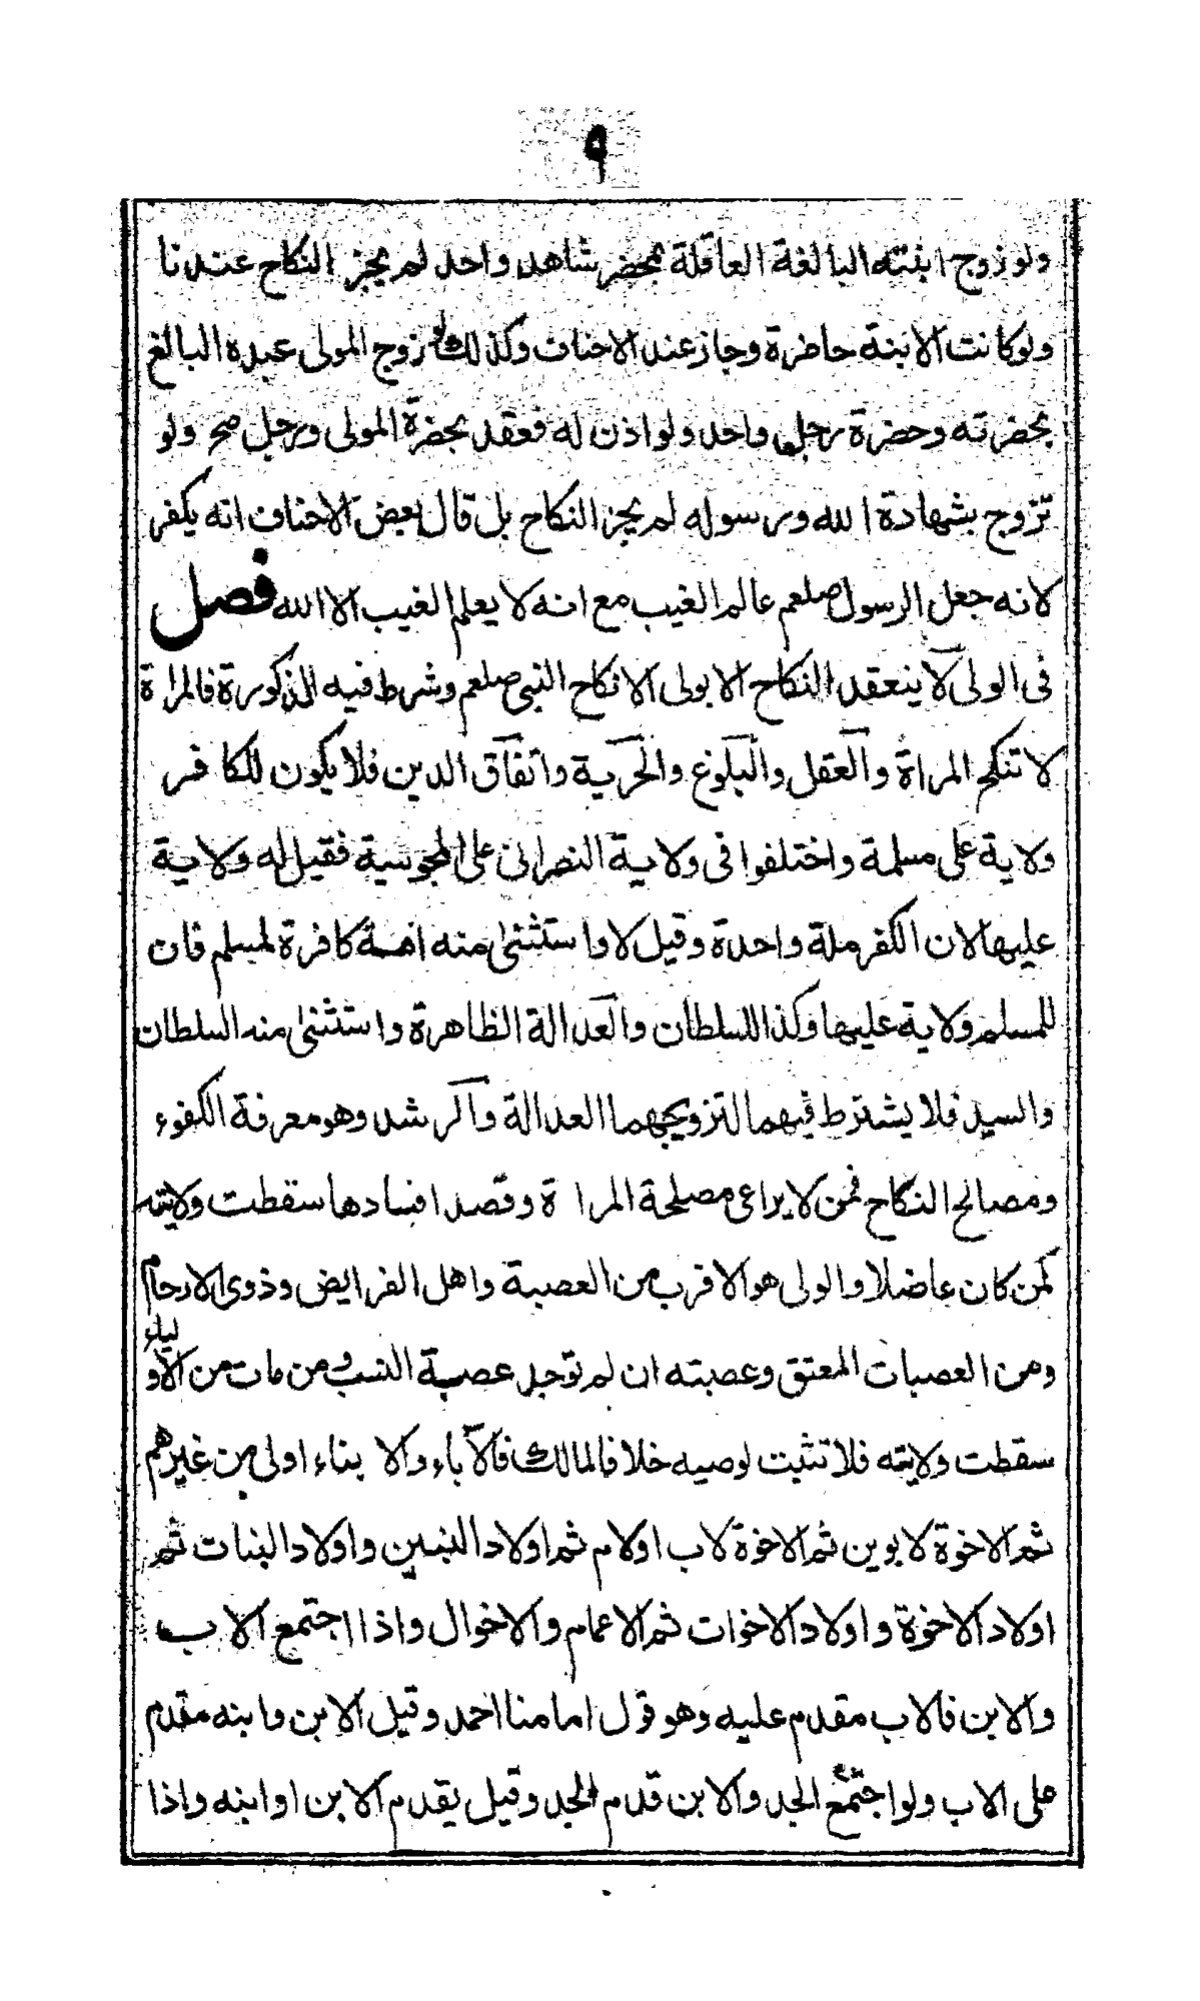 ٩
ولو زوج ابنته البالغة العاقلة بمحضر شاهد واحد لم يجز النكاح عندنا
ولو كانت الابنة حاضرة وجاز عند الاحناف وكذلك لو زوج المولى عبده البالغ
بحضرته وحضرة رجل واحد ولو اذن له فعقد بحضرة المولى ورجل صح ولو
تزوج بشهادة الله ورسوله لم يجز النكاح بل قال بعض الاحناف انه يكفر
لانه جعل الرسول صلعم عالم الغيب مع انه لا يعلم الغيب الا الله فصل
فى الولى لا ينعقد النكاح الا بولى الا نكاح النبى صلعم وشرط فيه الذكورة فالمراة
لا تنكح المراة والعقل والبلوغ والحرية واتفاق الدين فلا يكون للكافر
ولاية على مسلمة واختلفوا فى ولاية النصرانى على المجوسية فقيل له ولاية
عليها لان الكفر ملة واحدة وقيل لا واستثنى منه امة كافرة لمسلم فان
للمسلم ولاية عليها وكذا السلطان والعدالة الظاهرة واستثنى منه السلطان
والسيد فلا يشترط فيهما لتزويجهما العدالة والرشد وهو معرفة الكفوء
ومصالح النكاح فمن لا يراعى مصلحة المراة وقصد افسادها سقطت ولايته
كمن كان عاضلا والولى هو الاقرب من العصبة واهل الفرايض وذوى الارحام
ومن العصبات المعتق وعصبته ان لم توجد عصبة النسب ومن مات من الاولياء
سقطت ولايته فلا تثبت لوصيه خلافا لمالك فالآباء والابناء اولى من غيرهم
ثم الاخوة لابوين ثم الاخوة لاب اولام ثم اولاد البنين واولاد البنات ثم
اولاد الاخوة واولاد الاخوات ثم الاعمام والاخوال واذا اجتمع الاب
والابن فالاب مقدم عليه وهو قول امامنا احمد وقيل الابن وابنه مقدم
على الاب ولو اجتمع الجد والابن قدم الجد وقيل يقدم الابن او ابنه واذا